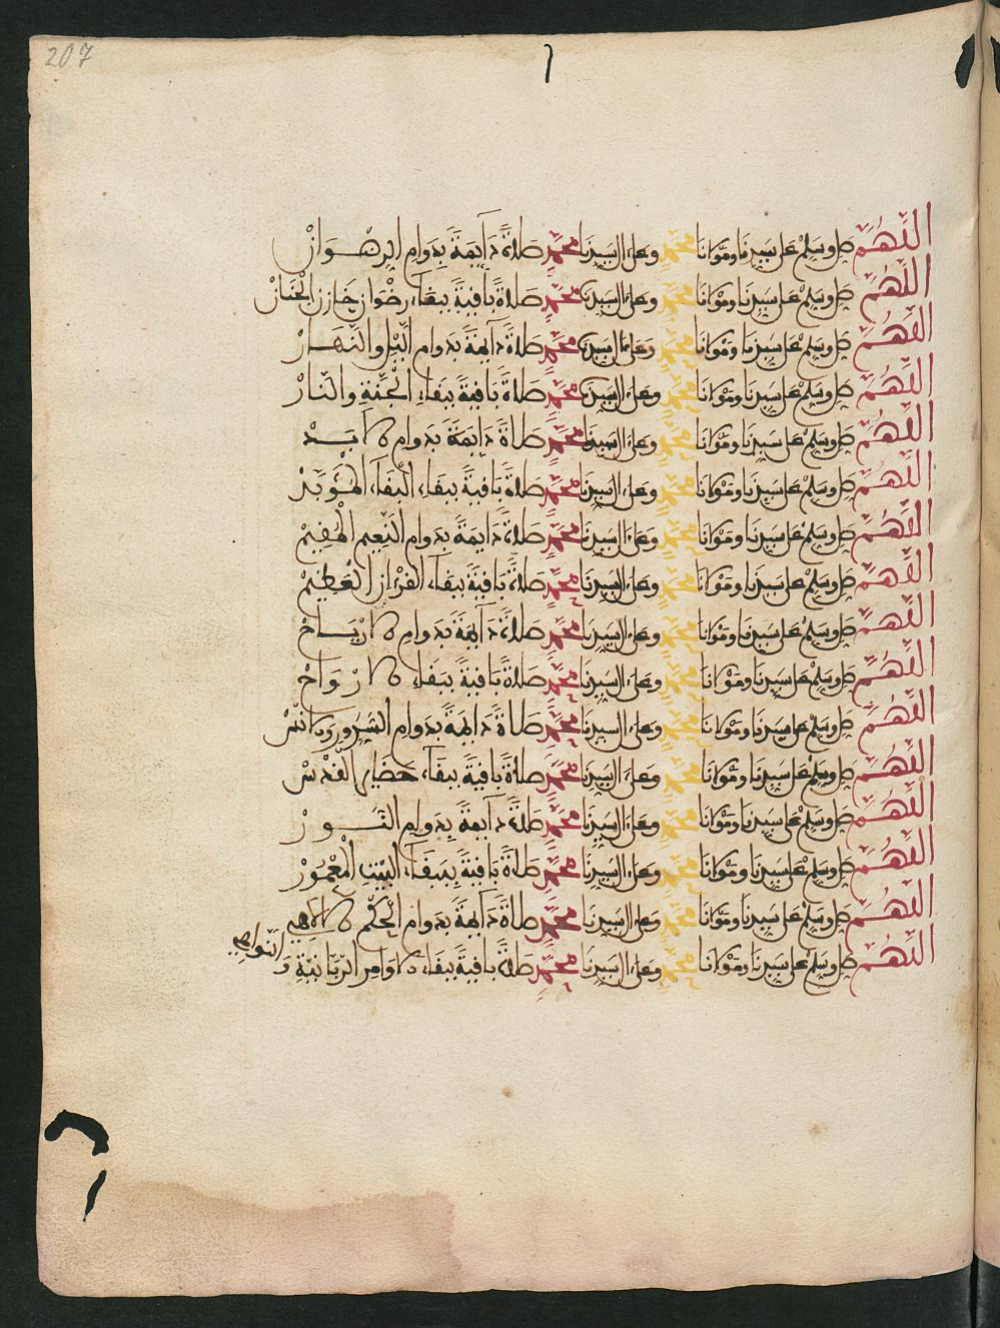 207
اللهم صل وسلم على سيدنا ومولانا محمد وعلى ءال سيدنا محمد صلاة دآيمة بدوام الرضوان
اللهم صل وسلم على سيدنا ومولانا محمد وعلى ءال سيدنا محمد صلاة باقية ببقآء رضوان خازن الجنان
اللهم صل وسلم على سيدنا ومولانا محمد وعلى ءال سيدنا محمد صلاة دآيمة بدوام اليل والنهار
اللهم صل وسلم على سيدنا ومولانا محمد وعلى ءال سيدنا محمد صلاة باقية ببقاء الجنة والنار
اللهم صل وسلم على سيدنا ومولانا محمد وعلى ءال سيدنا محمد صلاة دآيمة بدوام الابد
اللهم صل وسلم على سيدنا ومولانا محمد وعلى ءال سيدنا محمد صلاة باقية ببقاء البقآء المؤبد
اللهم صل وسلم على سيدنا ومولانا محمد وعلى ءال سيدنا محمد صلاة دآيمة بدوام النعيم المقيم
اللهم صل وسلم على سيدنا ومولانا محمد وعلى ءال سيدنا محمد صلاة باقية ببقآء القرءان العظيم
اللهم صل وسلم على سيدنا ومولانا محمد وعلى ءال سيدنا محمد صلاة دآيمة بدوام الارياح
اللهم صل وسلم على سيدنا ومولانا محمد وعلى ءال سيدنا محمد صلاة باقية ببقاء الارواح
اللهم صل وسلم على سيدنا ومولانا محمد وعلى ءال سيدنا محمد صلاة دايمة بدوام السرور والانس
اللهم صل وسلم على سيدنا ومولانا محمد وعلى ءال سيدنا محمد صلاة باقية ببقآء حضاير القدس
اللهم صل وسلم على سيدنا ومولانا محمد وعلى ءال سيدنا محمد صلاة دآيمة بدوام النور
اللهم صل وسلم على سيدنا ومولانا محمد وعلى ءال سيدنا محمد صلاة باقية ببقآء البيت المعمور
اللهم صل وسلم على سيدنا ومولانا محمد وعلى ءال سيدنا محمد صلاة دآيمة بدوام الحكم الالاهية
اللهم صل وسلم على سيدنا ومولانا محمد وعلى ءال سيدنا محمد صلاة باقية ببقاء الاوامر الربانية و النواهي